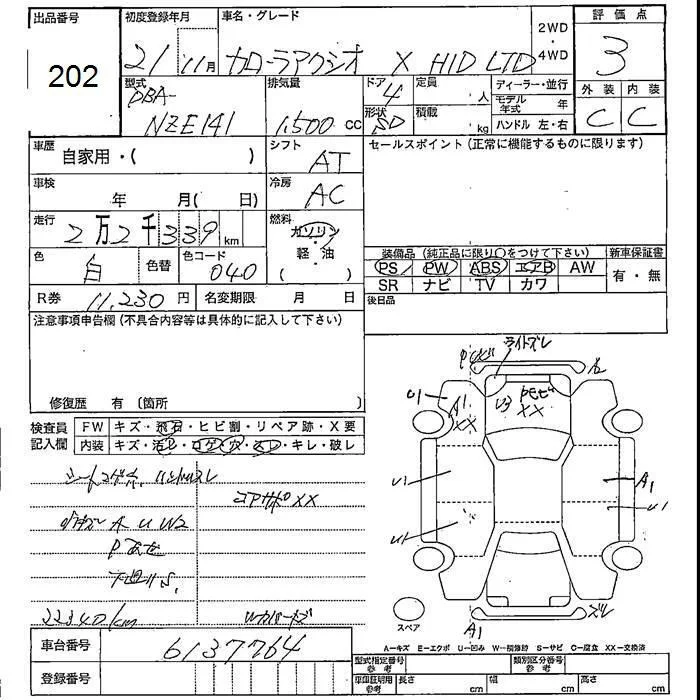 出品番号
202
初度登録年月
21 11月
車名・グレード
カローラアクシオ X HID LTD
2WD
・
4WD
評価点
3
外装 内装
C C
型式
DBA-
NZE141
排気量
1,500 cc
ドア
4
形状
SD
定員
人
積載
kg
ディーラー・並行
モデル年式 年
ハンドル 左・右
車歴
自家用・( )
シフト
AT
セールスポイント(正常に機能するものに限ります)
車検
年 月( 日)
冷房
AC
走行
2万2千339km
燃料
ガソリン
・
軽・油
( )
色
白
色替
色コード
040
装備品(純正品に限り○をつけて下さい)
PS PW ABS エアB AW
SR ナビ TV カワ
新車保証書
有・無
R券 11,230円
名変期限 月 日
後日品
注意事項申告欄(不具合内容等は具体的に記入して下さい)
修復歴 有(箇所
検査員
記入欄
FW キズ・飛石・ヒビ割・リペア跡・X要
内装 キズ・汚レ・コゲ・穴・スレ・キレ・破レ
コアサポXX
A U W2
22340km
ライトズレ
U1
A1
XX
U3
XX
U1
U1
A1
U1
ズレ
A1
スペア
A-キズ E-エクボ U-凹み W-補修跡 S-サビ C-腐食 XX-交換済
車台番号
6137764
登録番号
型式指定番号
参考
類別区分番号
参考
車庫証明用
参考
長さ cm
幅 cm
高さ cm